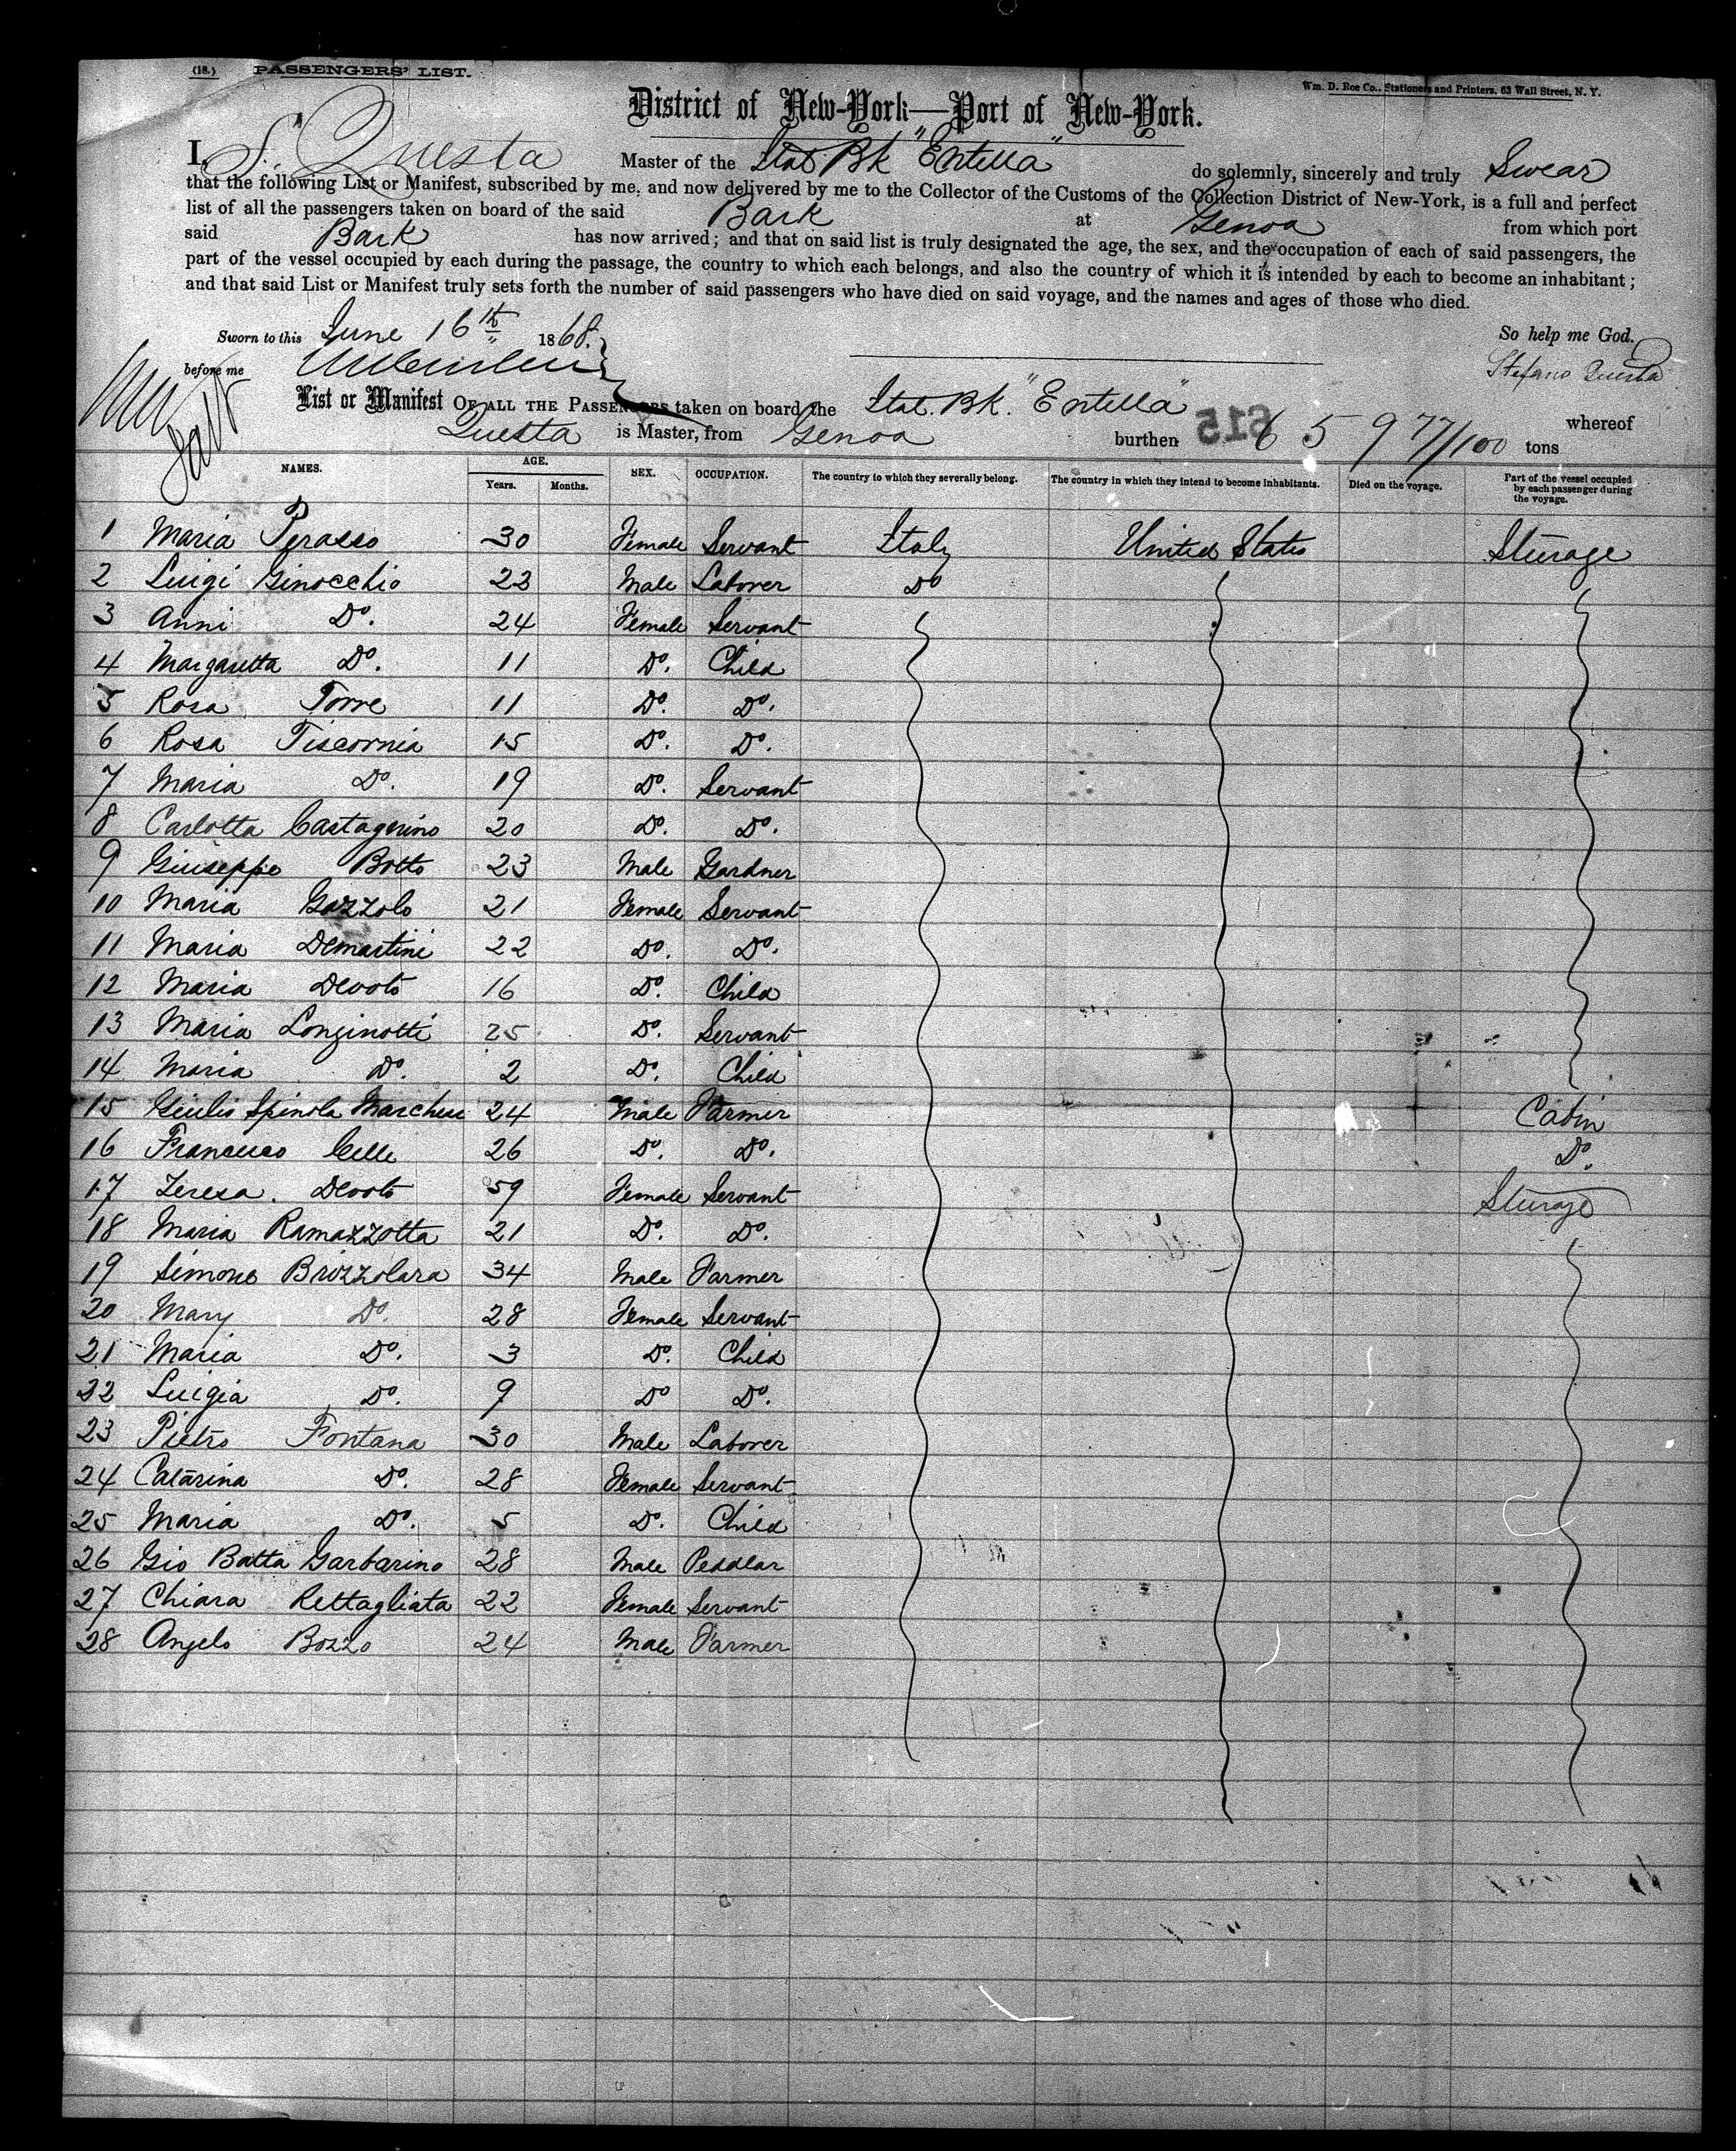 (18.) PASSENGERS' LIST.
Wm. D. Roe Co., Stationers and Printers, 63 Wall Street, N. Y.
District of New-York—Port of New-York.
I, S. Questa Master of the Ital. Bk "Entella" do solemnly, sincerely and truly Swear
that the following List or Manifest, subscribed by me, and now delivered by me to the Collector of the Customs of the Collection District of New-York, is a full and perfect
list of all the passengers taken on board of the said Bark at Genoa from which port
said Bark has now arrived; and that on said list is truly designated the age, the sex, and the occupation of each of said passengers, the
part of the vessel occupied by each during the passage, the country to which each belongs, and also the country of which it is intended by each to become an inhabitant;
and that said List or Manifest truly sets forth the number of said passengers who have died on said voyage, and the names and ages of those who died.
Sworn to this June 16th 1868. So help me God.
before me Stefano Questa
List or Manifest OF ALL THE PASSENGERS taken on board the Ital. Bk. "Entella" whereof
Questa is Master, from Genoa burthen 615 659 77/100 tons
NAMES. AGE. Years. Months. SEX. OCCUPATION. The country to which they severally belong. The country in which they intend to become inhabitants. Died on the voyage. Part of the vessel occupied by each passenger during the voyage.
1 Maria Perasso 30 Female Servant Italy United States Sturage
2 Luigi Ginocchio 23 Male Laborer Do
3 Anni Do. 24 Female Servant
4 Margaretta Do. 11 Do. Child
5 Rosa Torre 11 Do. Do.
6 Rosa Tiscornia 15 Do. Do.
7 Maria Do. 19 Do. Servant
8 Carlotta Castagnino 20 Do. Do.
9 Giuseppe Botto 23 Male Gardner
10 Maria Gazzolo 21 Female Servant
11 Maria Demartini 22 Do. Do.
12 Maria Devoto 16 Do. Child
13 Maria Longinotti 25 Do. Servant
14 Maria Do. 2 Do. Child
15 Giulio Spinola Marchese 24 Male Farmer Cabin
16 Francesco Celle 26 Do. Do. Do.
17 Teresa. Devoto 59 Female Servant Sturage
18 Maria Ramazzotta 21 Do. Do.
19 Simone Brizzolara 34 Male Farmer
20 Mary Do. 28 Female Servant
21 Maria Do. 3 Do. Child
22 Luigia Do. 9 Do Do.
23 Pietro Fontana 30 Male Laborer
24 Catarina Do. 28 Female Servant
25 Maria Do. 5 Do. Child
26 Gio Batta Garbarino 28 Male Peddlar
27 Chiara Rettagliata 22 Female Servant
28 Angelo Bozzo 24 Male Farmer